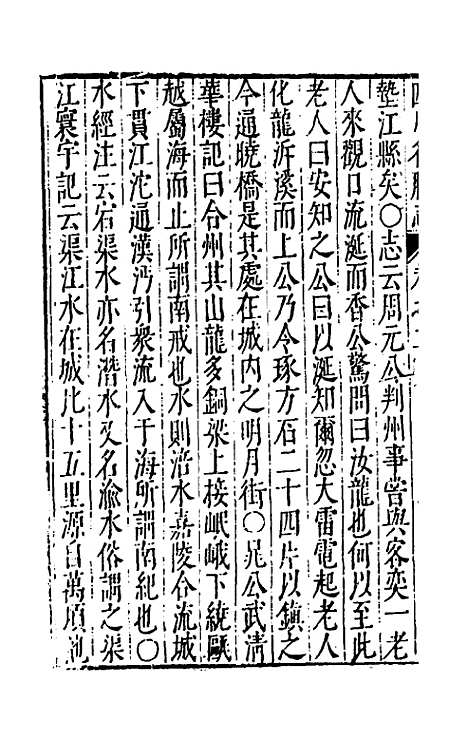 墊江縣矣〇志云周元公判州事嘗與客奕一老
人來觀口流涎而香公驚問曰汝龍也何以至此
老人曰安知之公曰以涎知爾忽大雷電起老人
化龍泝溪而上公乃令琢方石二十四片以鎮之
今通曉橋是其處在城内之明月街〇晁公武清
華樓記曰合州其山龍多銅梁上接岷峨下繞甌
越屬海而止所謂南戒也水則涪水嘉陵合流城
下貫江沱通漢沔引衆流入于海所謂南紀也〇
水經注云宕渠水亦名潛水又名渝水俗謂之渠
江寰宇記云渠江水在城北十五里源自萬頃池